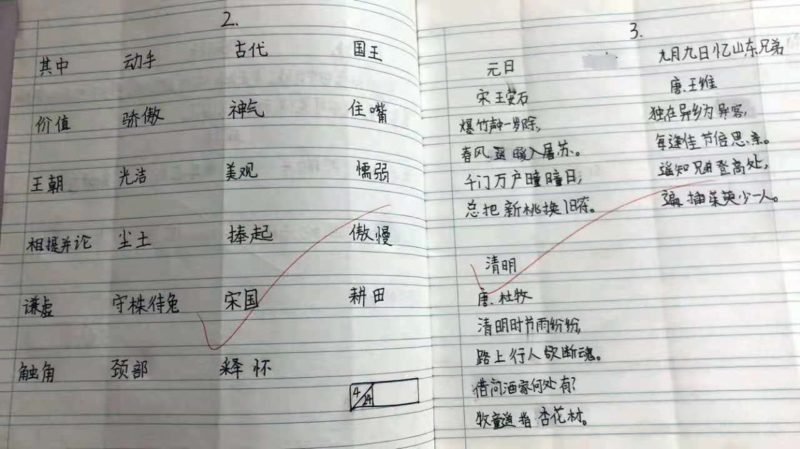 2.
其中 动手 古代 国王
价值 骄傲 神气 住嘴
王朝 光洁 美观 懦弱
相提并论 尘土 捧起 傲慢
谦虚 守株待兔 宋国 耕田
触角 颈部 释怀
3.
元日
宋.王安石
爆竹声中一岁除,
春风 暖入屠苏。
千门万户瞳瞳日,
总把新桃换旧符。
清明
唐.杜牧
清明时节雨纷纷,
路上行人欲断魂。
借问酒家何处有?
牧童遥指杏花村。
九月九日忆山东兄弟
唐.王维
独在异乡为异客,
每逢佳节倍思亲。
遥知兄弟登高处,
遍插茱萸少一人。